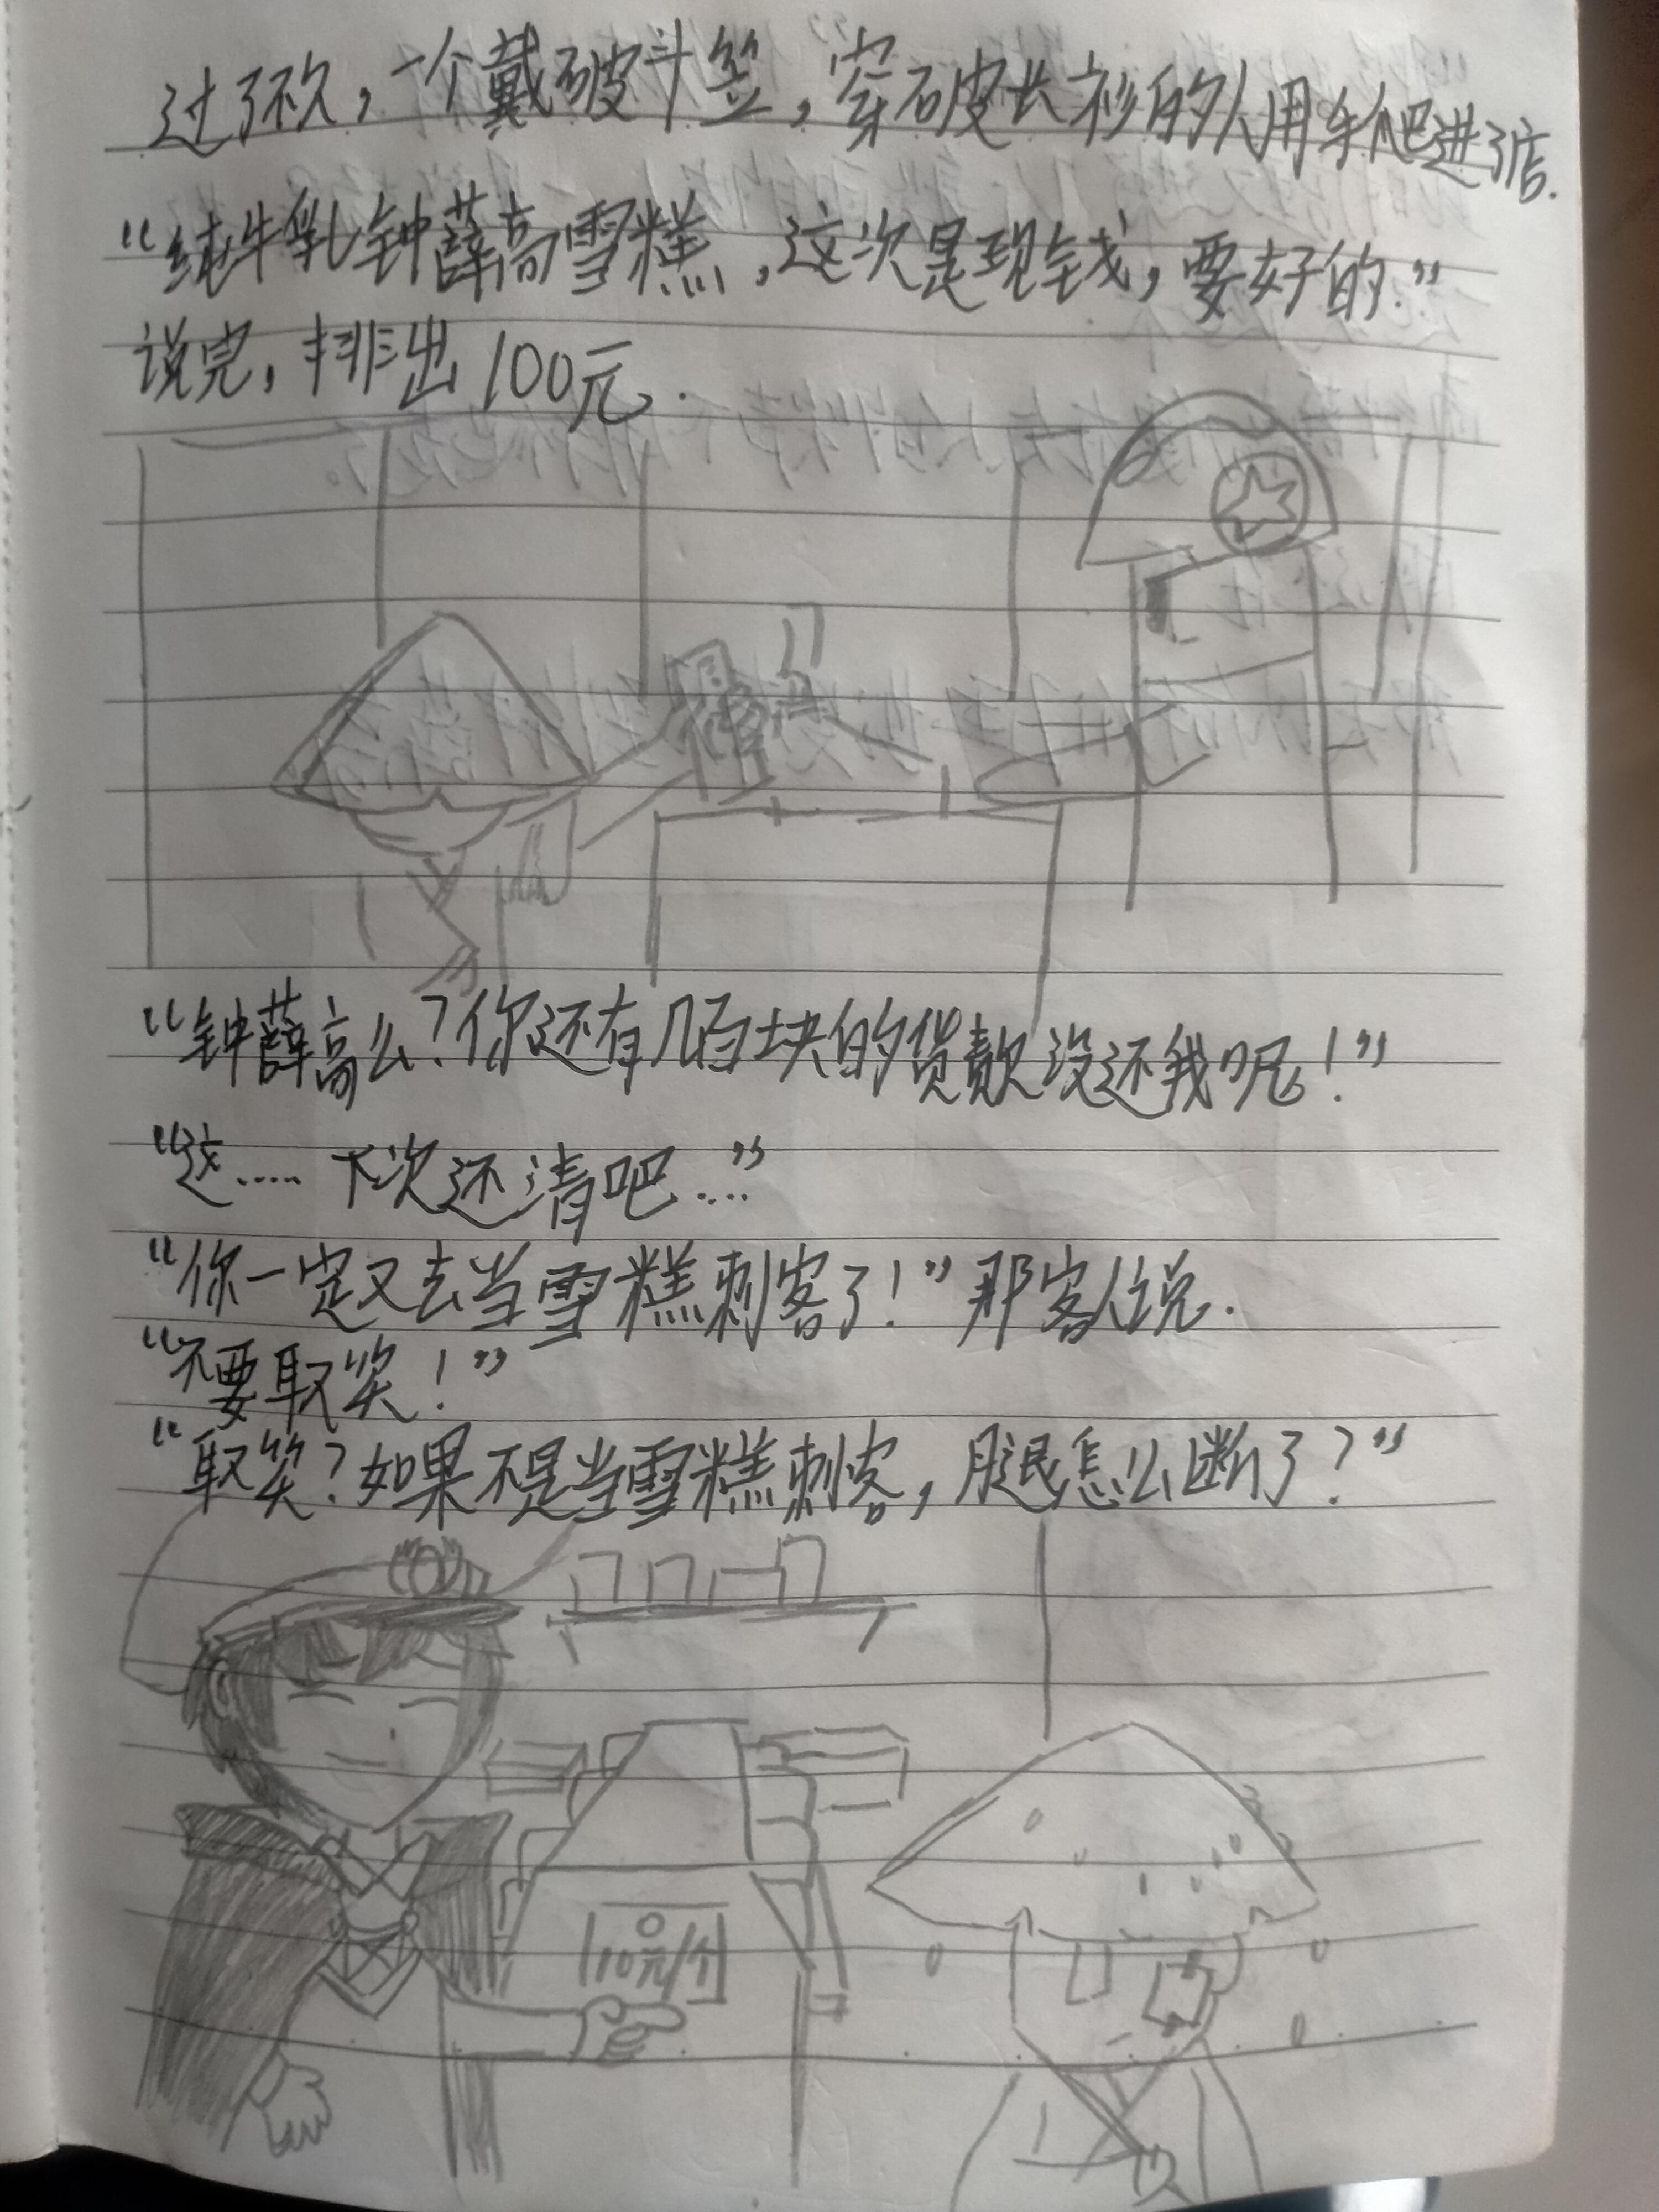 过了不久，一个戴破斗笠，穿破皮长衫的人用手爬进了店.
“纯牛乳钟薛高雪糕，这次是现钱，要好的.”
说完，排出100元.
“钟薛高么？你还有几百块的货款没还我呢！”
“这..... 下次还清吧....”
“你一定又去当雪糕刺客了！”那客人说.
“不要取笑！”
“取笑？如果不是当雪糕刺客，腿怎么断了？”
10元/个